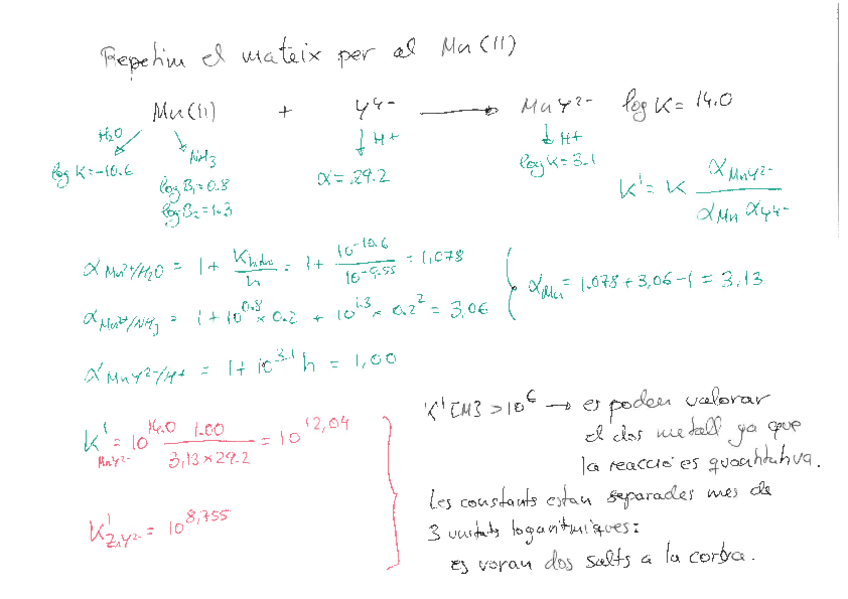 Repetim el mateix per al Mn(II)
Mn(II) + Y4- → MnY2- log K = 14.0
H2O NH3 ↓ H+ ↓ H+
log K = -10.6 log β1 = 0.8 α = 29.2 log K = 3.1
log β2 = 1.3
K' = K αMnY2- / αMn αY4-
αMn2+/H2O = 1 + Khidro / h = 1 + 10^-10.6 / 10^-9.55 = 1,078
αMn2+/NH3 = 1 + 10^0.8 × 0.2 + 10^1.3 × 0.2^2 = 3,06
αMn = 1.078 + 3,06 - 1 = 3,13
αMnY2-/H+ = 1 + 10^3.1 h = 1,00
K'MnY2- = 10^14.0 1.00 / 3,13 × 29.2 = 10^12,04
K'ZnY2- = 10^8,755
K'[M] > 10^6 → es poden valorar
el dos metall ja que
la reacció es quantitativa.
Les constants estan separades mes de
3 unitats logaritmiques:
es voran dos salts a la corba.